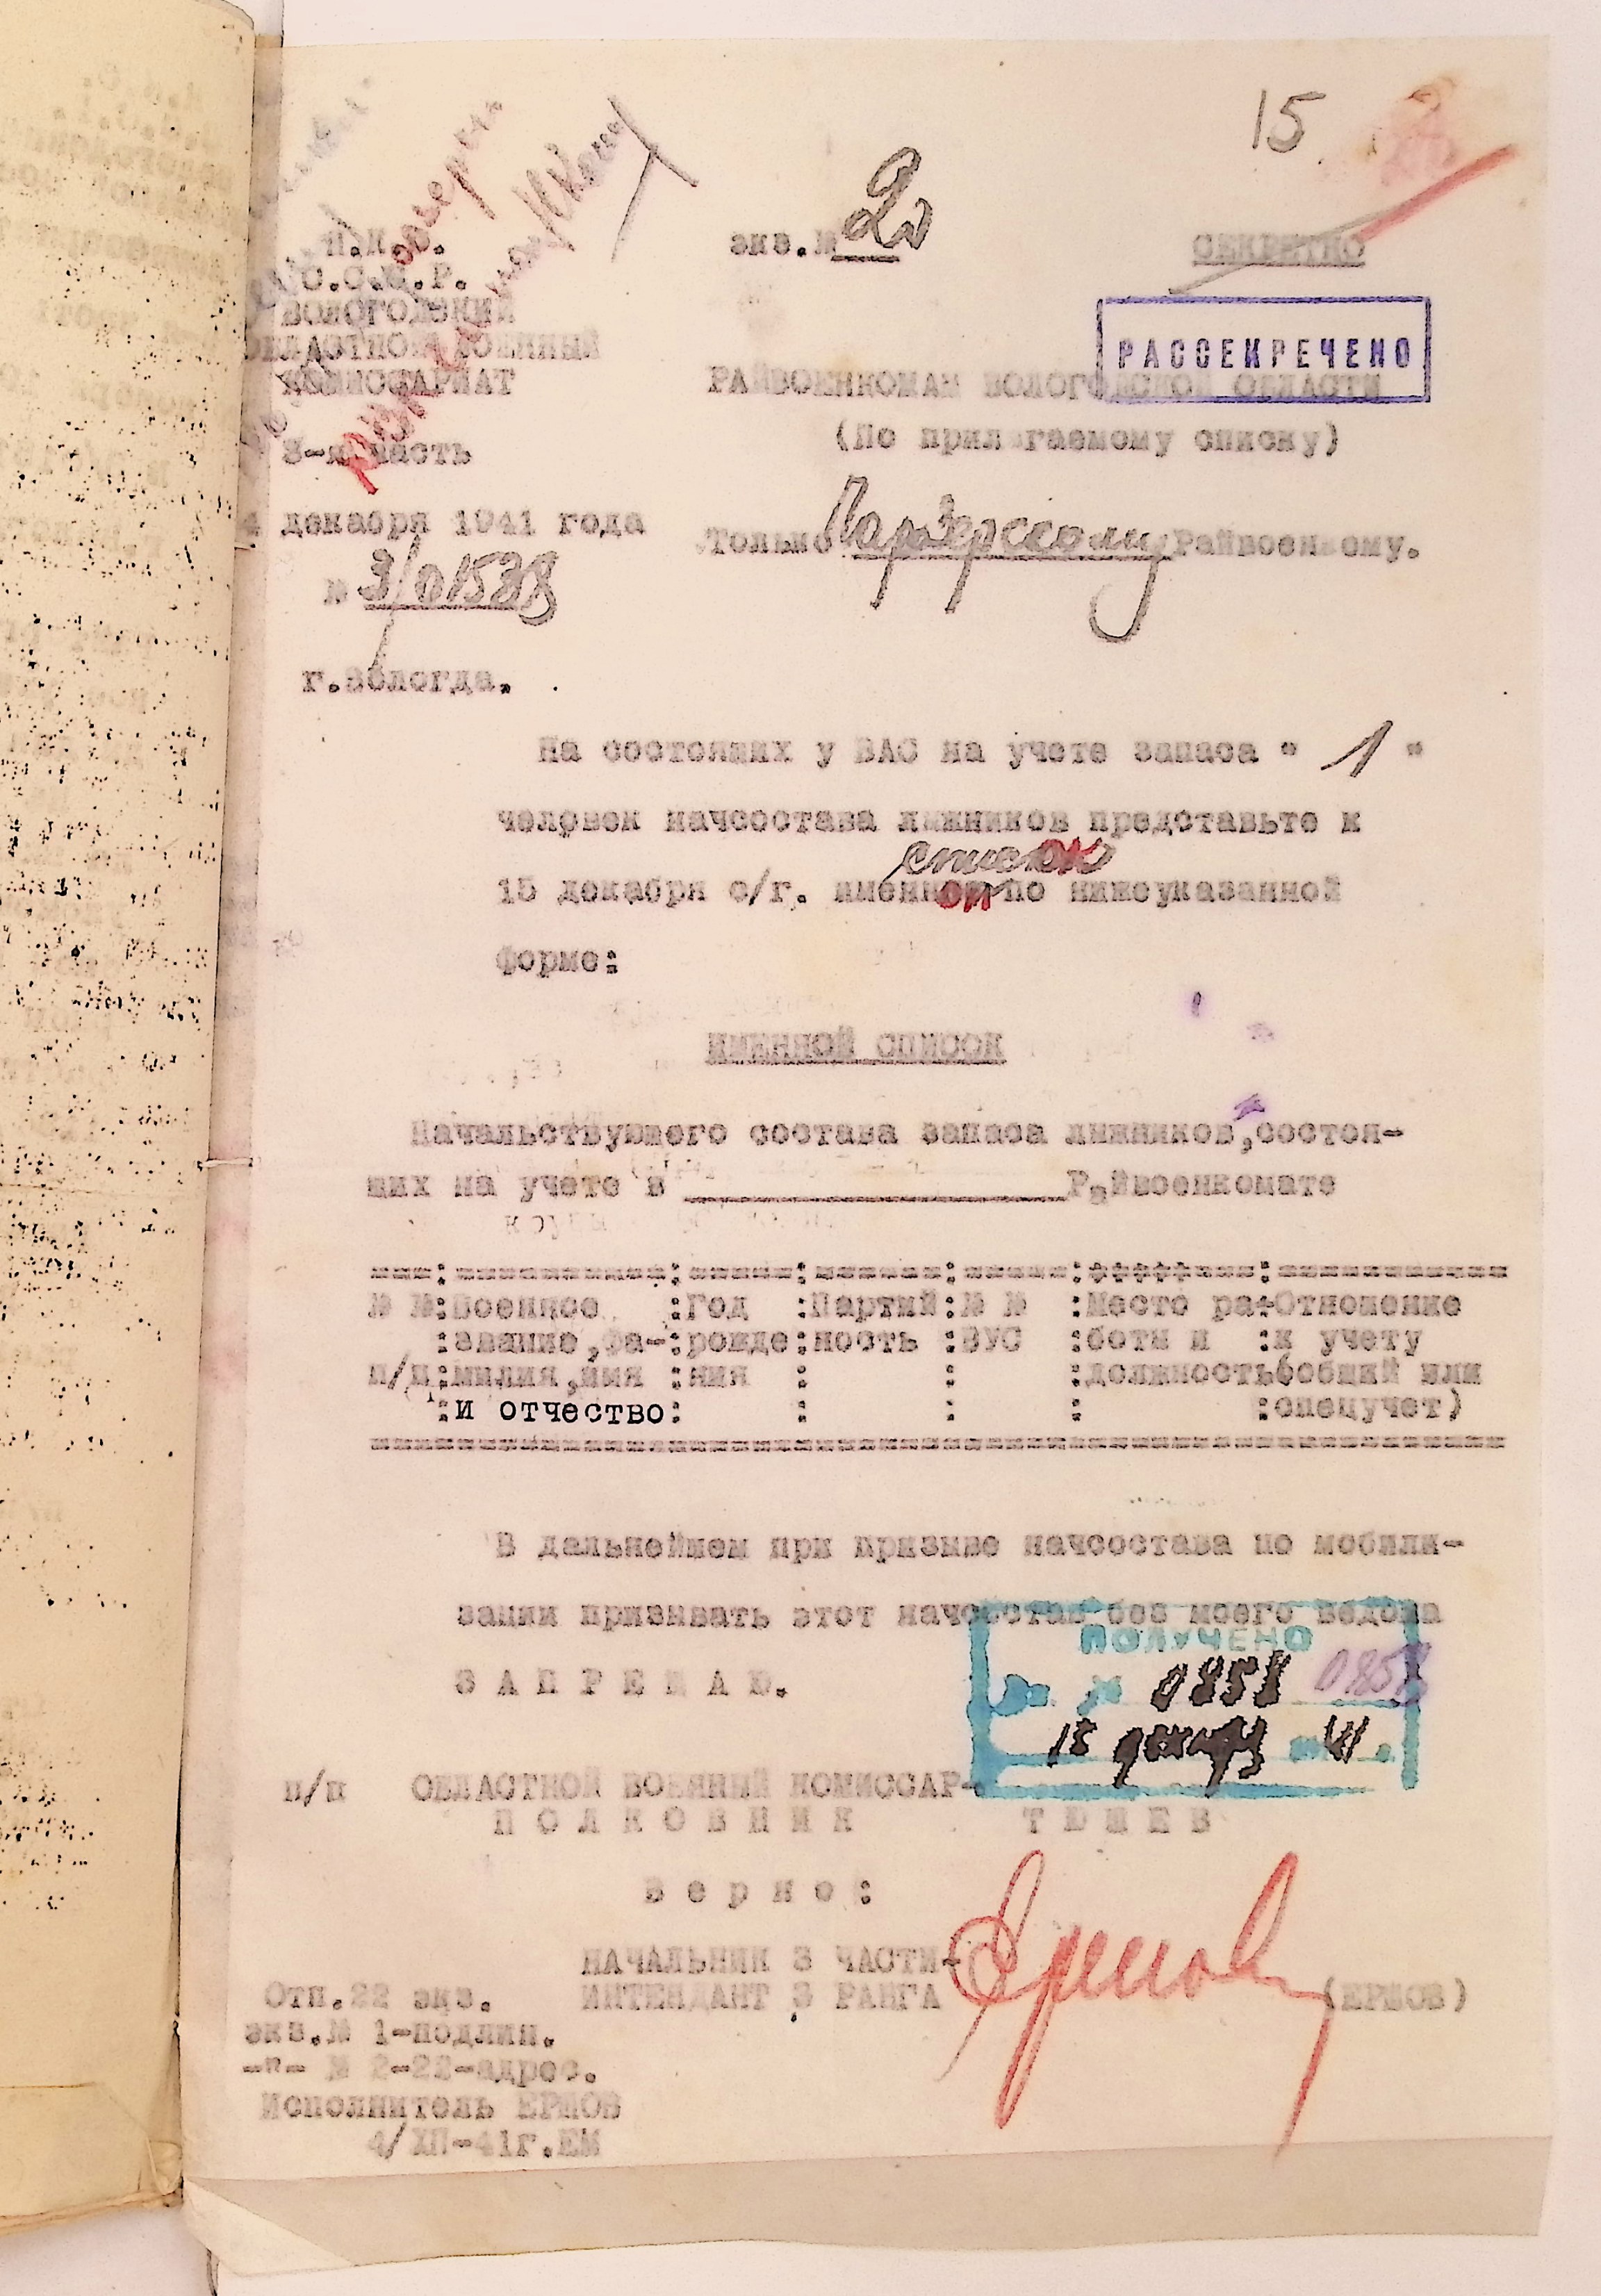 15
экз.№ 2
СЕКРЕТНО
Н.К.О.
С.С.С.Р.
ВОЛОГОДСКИЙ
ОБЛАСТНОЙ ВОЕННЫЙ
КОМИССАРИАТ
3-я часть
4 декабря 1941 года
№ 3/01538
г.Вологда.
РАССЕКРЕЧЕНО
РАЙВОЕНКОМАМ ВОЛОГОДСКОЙ ОБЛАСТИ
(По прилагаемому списку)
Только Райвоенкому.
На состоящих у ВАС на учете запаса " 1 "
человек начсостава лыжников представьте к
список
15 декабря с/г. именной по нижеуказанной
форме:
ИМЕННОЙ СПИСОК
Начальствующего состава запаса лыжников,состоя-
щих на учете в Райвоенкомате
№ №:Военное :Год :Партий:№ № :Место ра-Отношение
:звание,фа-:рожде:ность :ВУС :боты и :к учету
п/п:милия,имя :ния : : :должность(общий или
:и отчество: : : : :спецучет)
В дальнейшем при призыве начсостава по мобили-
зации призывать этот начсостав без моего ведома
З А П Р Е Щ А Ю.
ПОЛУЧЕНО
Вх. № 0858 0858
15 декабря 41.
п/п ОБЛАСТНОЙ ВОЕННЫЙ КОМИССАР-
П О Л К О В Н И К Т Ю Ш Е В
В е р н о :
НАЧАЛЬНИК 3 ЧАСТИ-
ИНТЕНДАНТ 3 РАНГА Ермов (ЕРМОВ)
Отп.22 экз.
экз.№ 1-подлин.
-"- № 2-22-адрес.
Исполнитель ЕРМОВ
4/ХП-41г.ЕМ